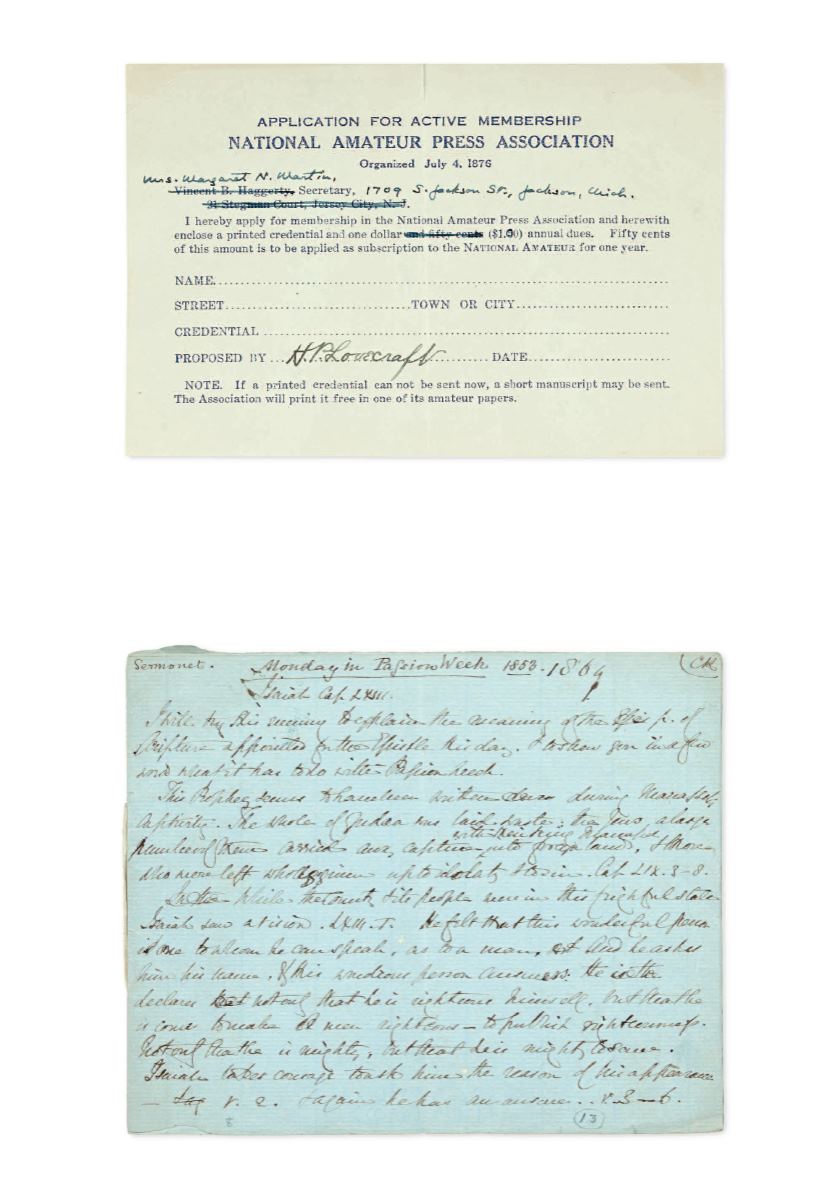 APPLICATION FOR ACTIVE MEMBERSHIP
NATIONAL AMATEUR PRESS ASSOCIATION
Organized July 4, 1876
Mrs. Margaret N. Martin,
Vincent B. Haggerty, Secretary, 1709 S. Jackson St., Jackson, Mich.
91 Stegman Court, Jersey City, N. J.
I hereby apply for membership in the National Amateur Press Association and herewith
enclose a printed credential and one dollar and fifty cents ($1.00) annual dues. Fifty cents
of this amount is to be applied as subscription to the NATIONAL AMATEUR for one year.
NAME
STREET TOWN OR CITY
CREDENTIAL
PROPOSED BY H.P. Lovecraft DATE
NOTE. If a printed credential can not be sent now, a short manuscript may be sent.
The Association will print it free in one of its amateur papers.
Sermonet. Monday in Passion Week 1853. 1864 CK
Isaiah Cap. LXIII.
I will try this evening to explain the meaning of the of
Scripture appointed for the Epistle this day. & to show you in a few
words what it has to do with Passion Week.
This Prophecy seems to have been written during
Captivity. The whole of Judea was laid waste; the Jews, a large
number of them carried away captive into land, & those
with
who were left up to idolatry & to sin. Cap LIX. 3-8.
In the While the country & its people were in this frightful state
Isaiah saw a vision. LXIII. 1. He felt that this wonderful person
is one to whom he can speak, as to a man, And he asks
him his name. & this wondrous person answers. He is the
declares not only that he is righteous himself, but that he
is come to make men righteous — to publish righteousness.
Not only that he is mighty, but that he is mighty to save.
Isaiah takes courage to ask him the reason of his appearance
— v. 2. & again he has an answer. v. 3-6.
8 13